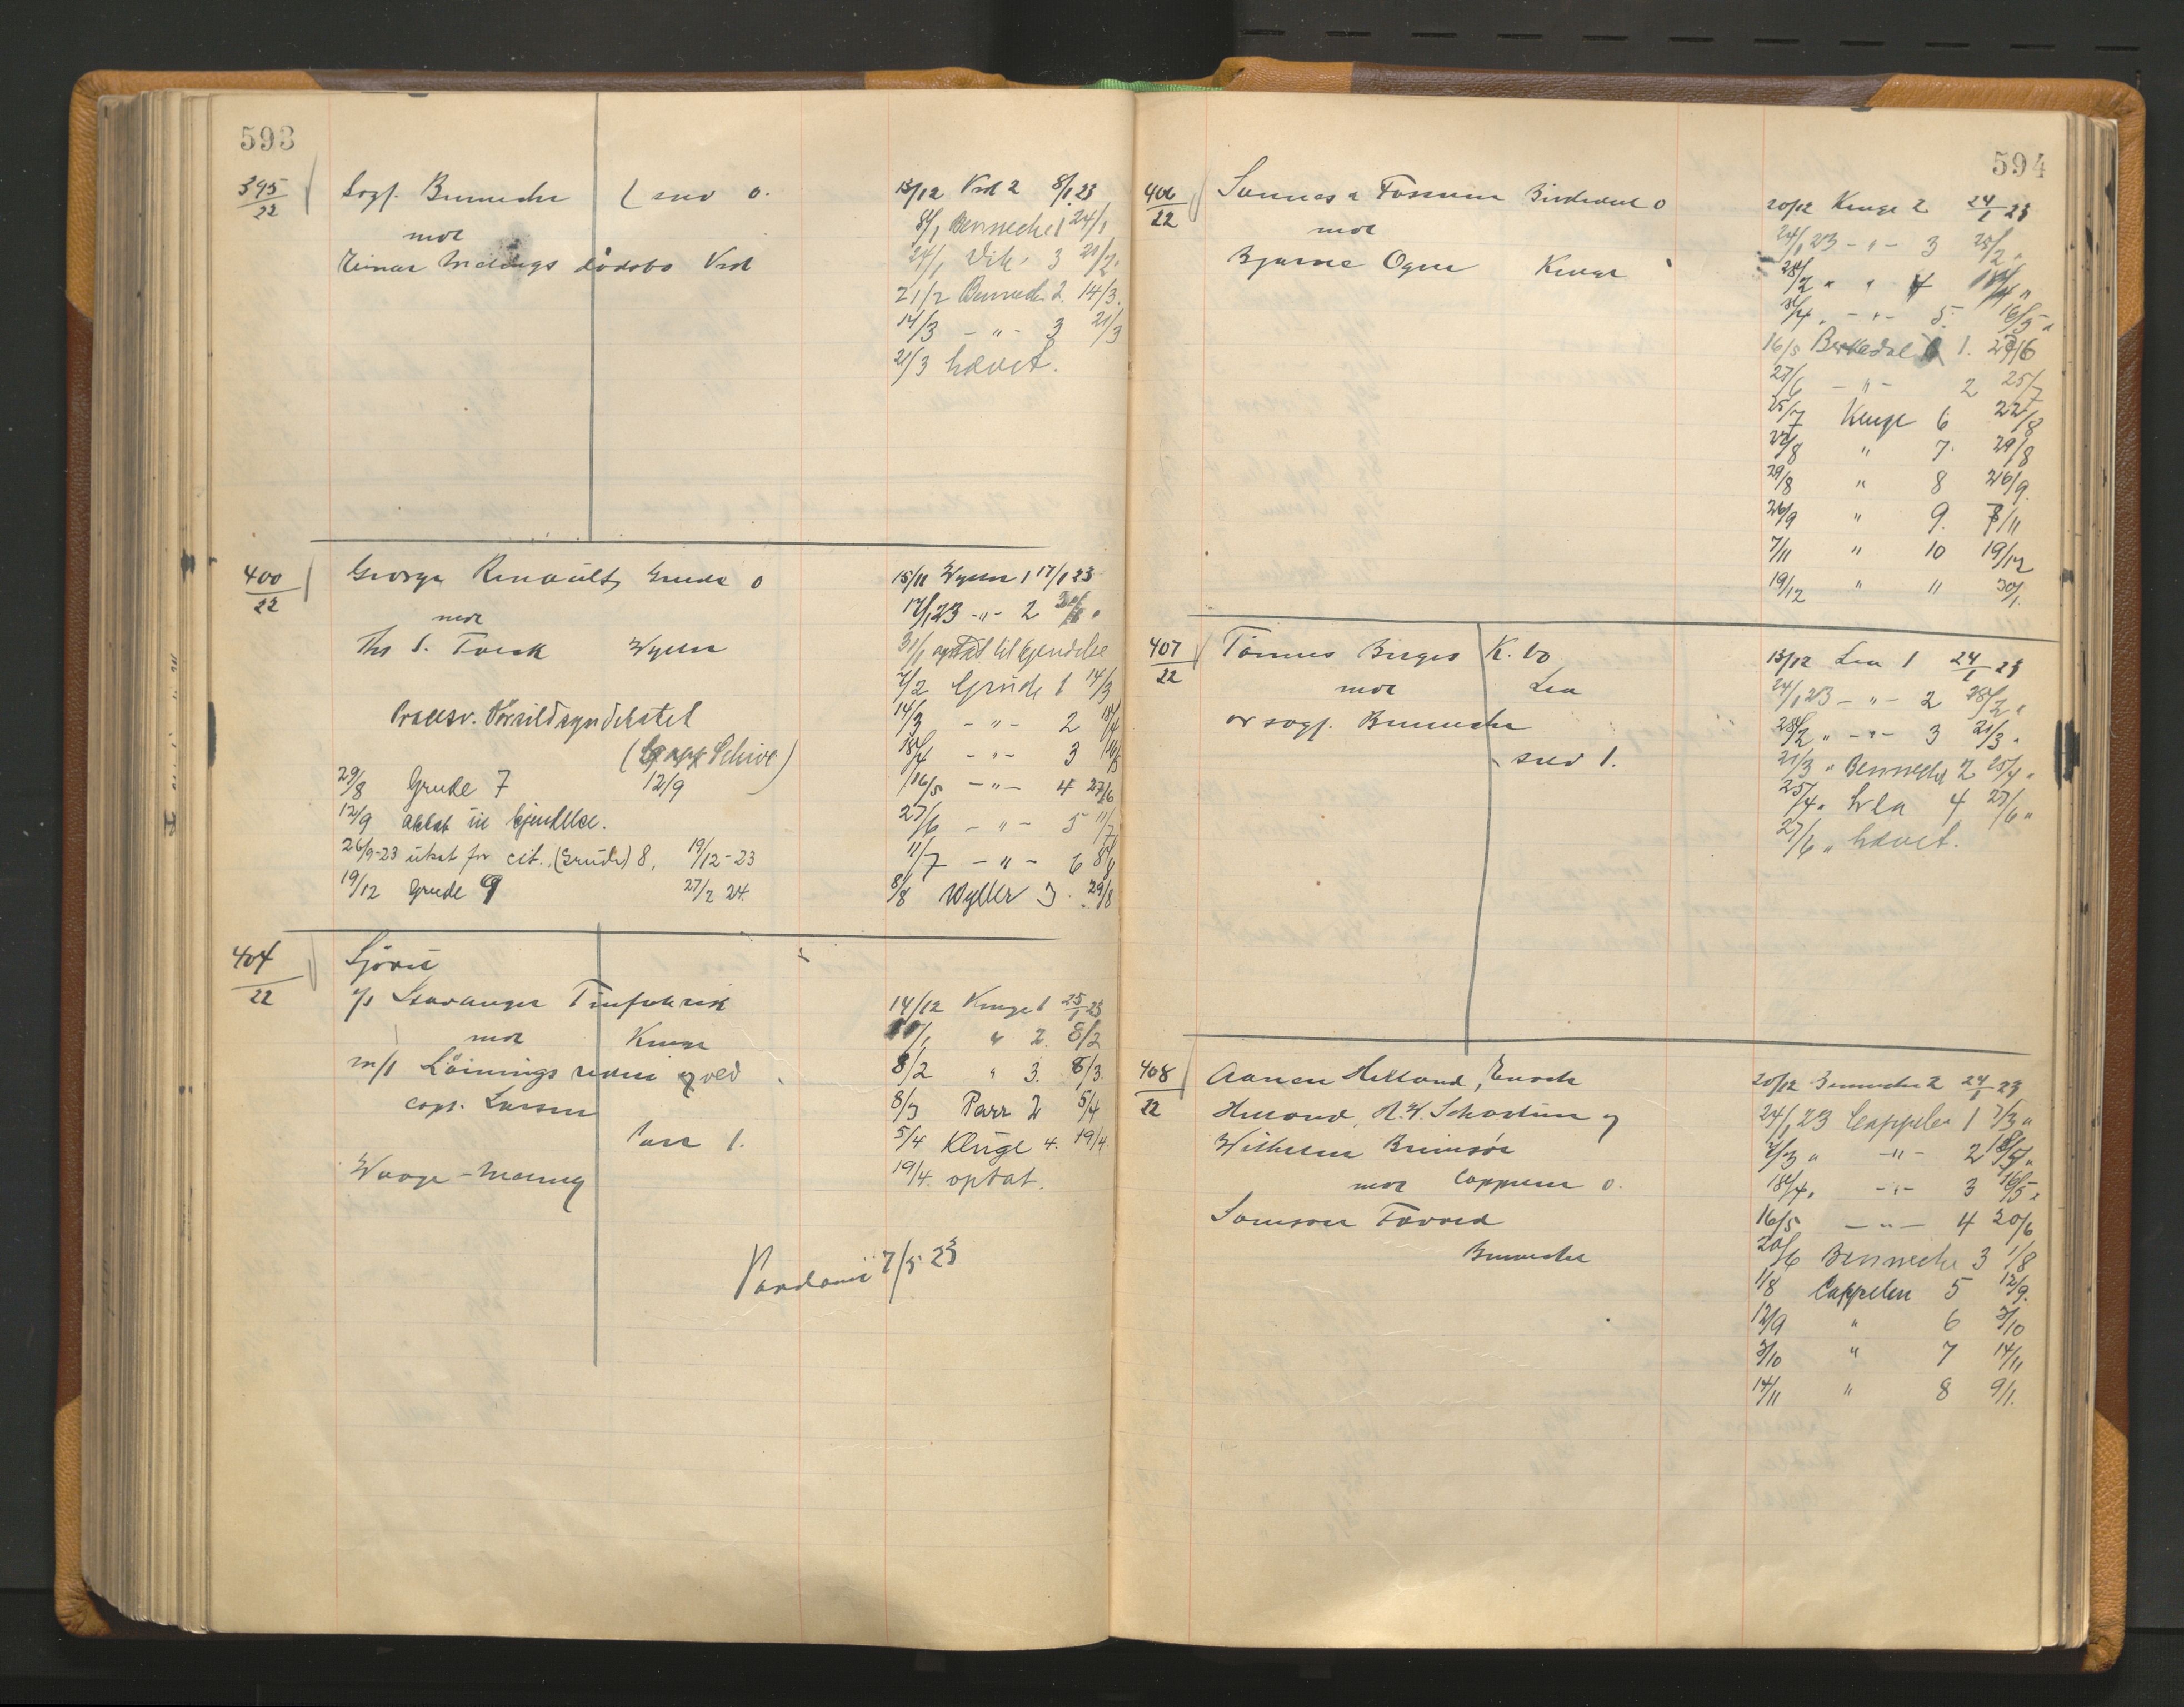 593
395/22 Sagf. Bennecke ( selv o. 13/12 Vik 2 8/1 23
mot 8/1 Bennecke 1 24/1
Einar Meldings dödsbo Vik 24/1 Vik 3 21/2
21/2 Bennecke 2. 14/3.
14/3 - " - 3 21/3
21/3 hævet.
400/22 George Renault, Grude o 15/11 Wyller 1 17/1 23
mot 17/1 23 - " - 2 31/1 "
Ths S. Falck Wyller 31/1 optat til kjendelse
7/2 Grude 1 14/3
Procesv. Vorsildsyndikatet 14/3 - " - 2 18/4
( Schive ) 18/4 - " - 3 16/5
29/8 Grude 7 12/9 16/5 - " - 4 27/6
12/9 optat til kjendelse. 27/6 - " - 5 11/7
26/9-23 utsat for cit. (Grude) 8, 19/12-23 11/7 - " - 6 8/8
19/12 Grude 9 27/2 24. 8/8 Wyller 3 29/8
404/22 Sjöret
A/S Stavanger Tinfabrik 14/12 Kluge 1 25/1 23
mot Kluge " 2. 8/2
m/s Löinings rederi ved 8/2 " 3. 8/3.
capt. Larsen 8/3 Parr 2 5/4
Parr 1. 5/4 Kluge 4. 19/4.
Waage - Mæling 19/4. optat.
7/5 23
594
406/22 Sannes & Fossum Birkedal o 20/12 Kluge 2 24/1 23
mot 24/1 23 - " - 3 28/2 "
Bjarne Ogne Kluge 28/2 " " 4 18/4 "
18/4 " - " - 5. 16/5 "
16/5 Birkedal 1. 27/6
27/6 - " - 2 25/7
25/7 Kluge 6 22/8
22/8 " 7. 29/8
29/8 " 8 26/9.
26/9 " 9. 7/11
7/11 " 10 19/12
19/12 " 11 30/1.
407/22 Tönnes Birges K. bo 13/12 Lea 1 24/1 23
mot Lea 24/1 23 - " - 2 28/2 "
or sagf. Bennecke 28/2 " - " - 3 21/3 "
selv 1. 21/3 " Bennecke 2 25/4 "
25/4 " Lea 4 27/6 "
27/6 " hævet.
408/22 Aanen Helland, Enock 20/12 Bennecke 2 24/1 23
Helland, H. W. Schartum og 24/1 23 Cappelen 1 7/3 "
Wilhelm Brimsöe 7/3 " - " - 2 18/4 "
mot Cappelen o. 18/4 " - " - 3 16/5 "
Samson Tovsed 16/5 - " - 4 20/6
Bennecke 20/6 Bennecke 3 1/8
1/8 Cappelen 5 12/9.
12/9 " 6 3/10
3/10 " 7 14/11
14/11 " 8 9/1.